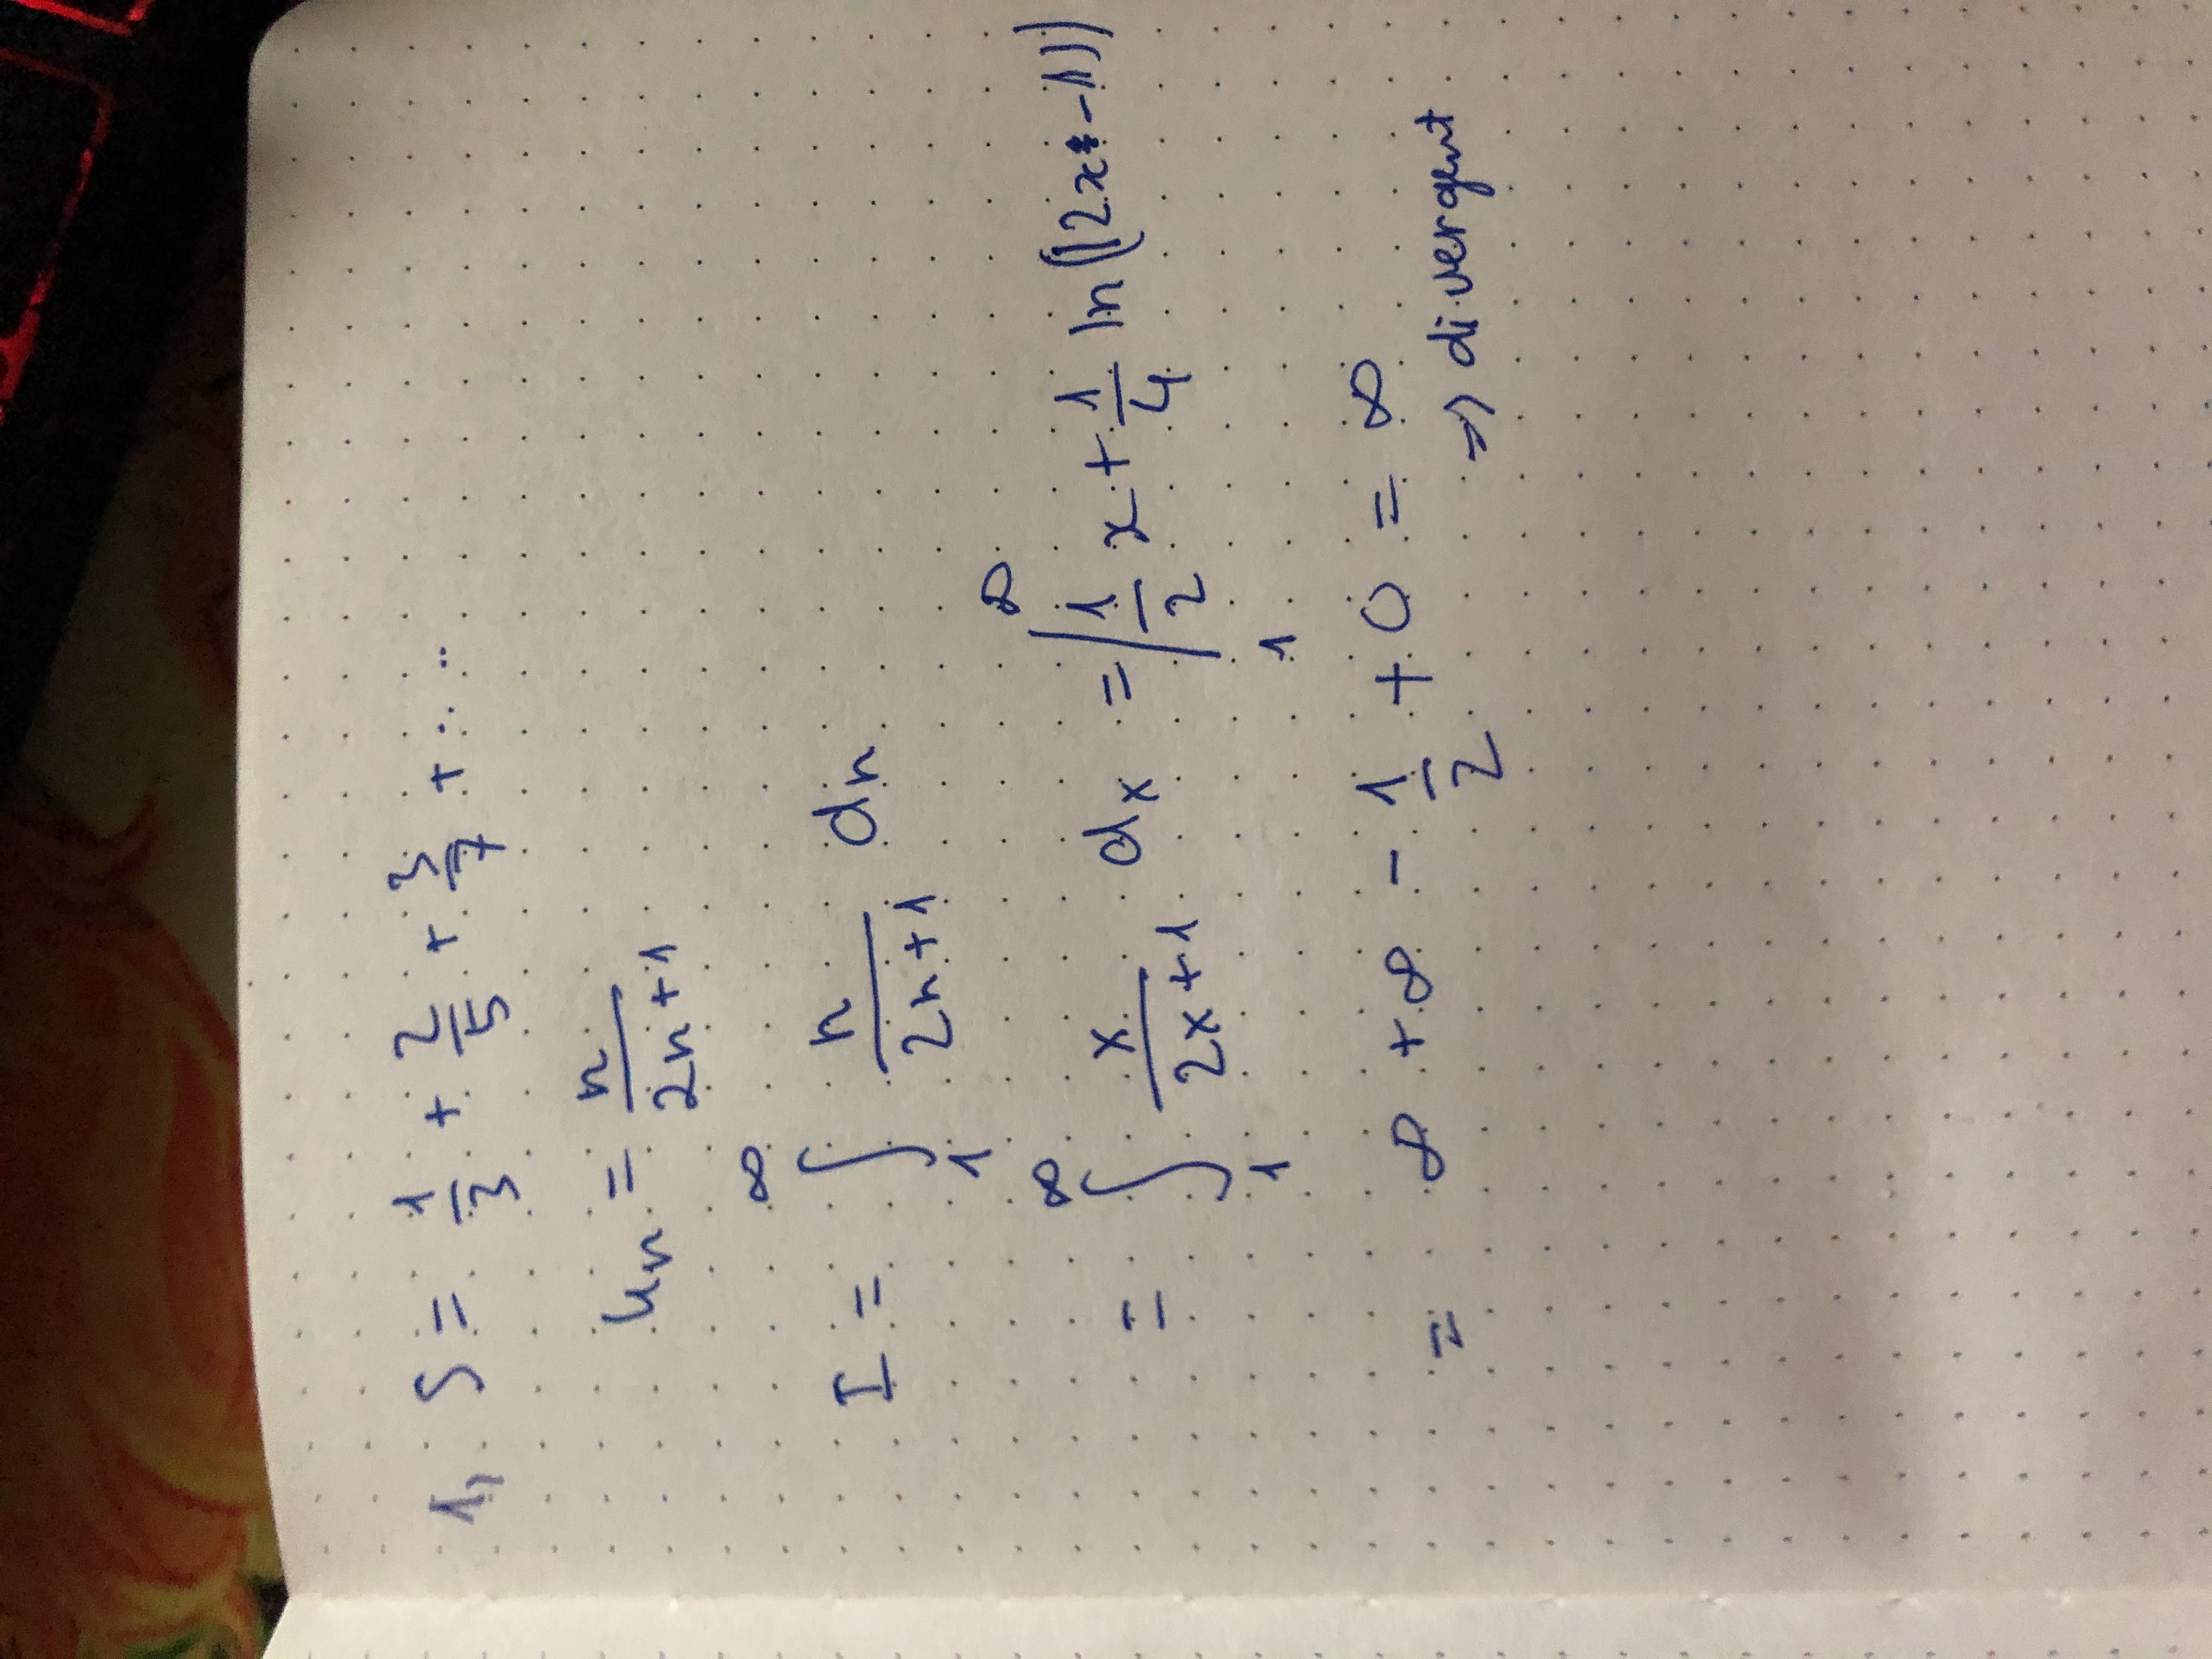 1, S = 1/3 + 2/5 + 3/7 + ....
u_n = n/(2n+1)
I = ∫_1^∞ n/(2n+1) dn
= ∫_1^∞ x/(2x+1) dx = |_1^∞ 1/2 x + 1/4 ln(|2x-1|)
= ∞ + ∞ - 1/2 + 0 = ∞
=> divergent